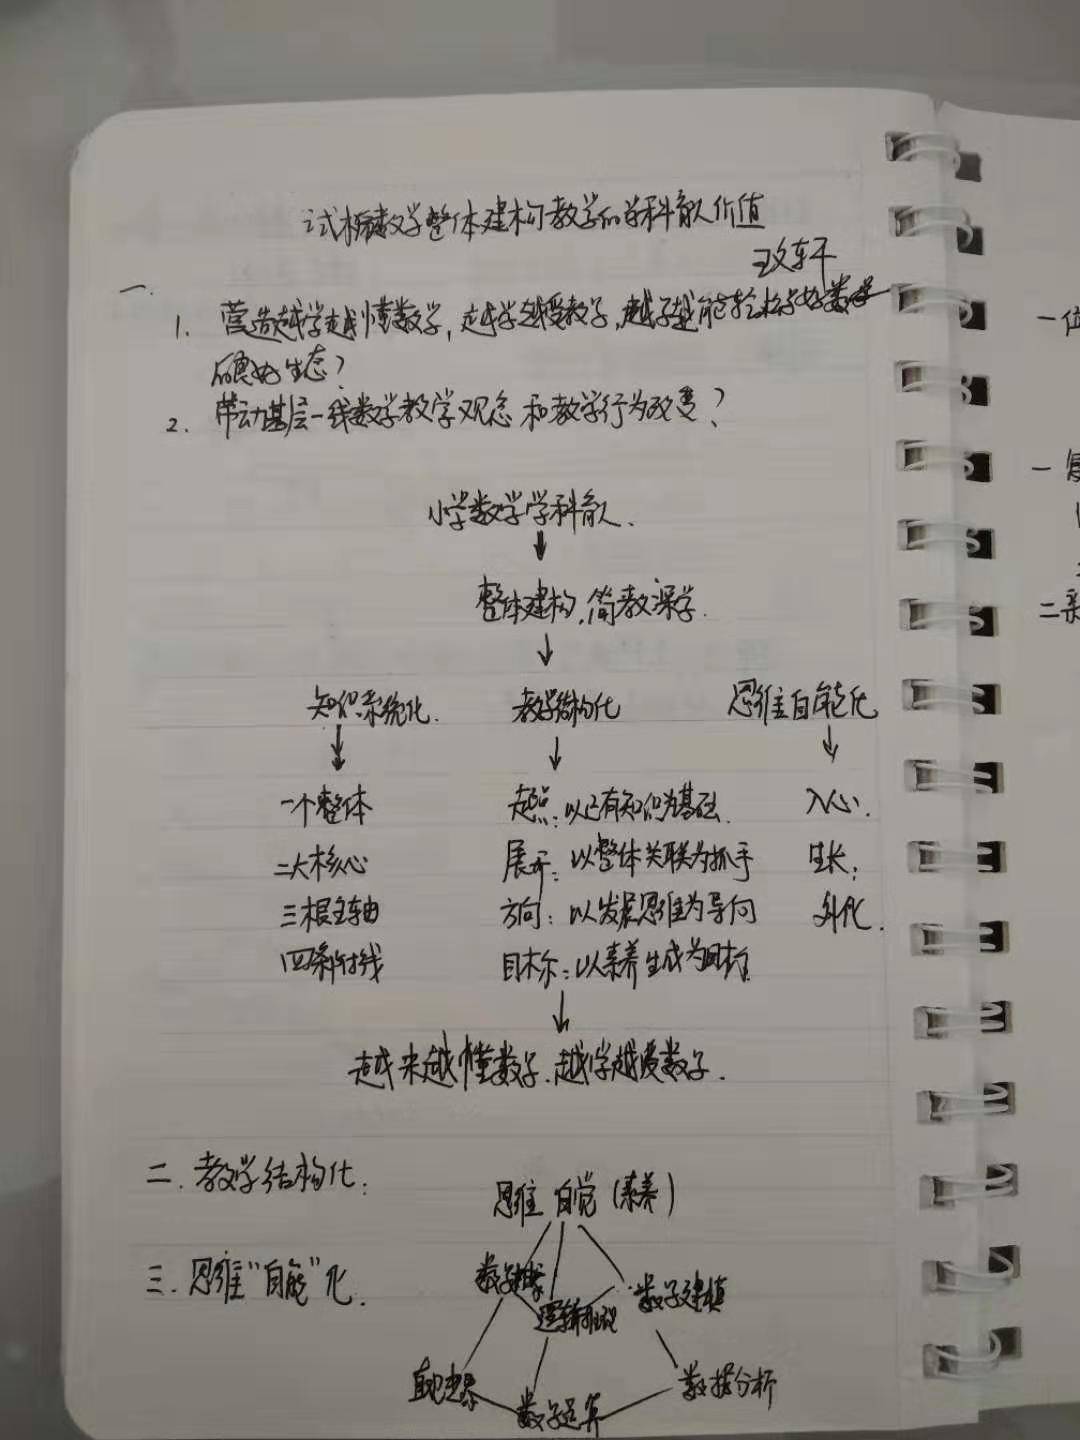 试析数学整体建构教学的学科育人价值
一.
1. 营造越学越懂数学,越学越爱数学,越学越能轻松学好数学
的良好生态?
2. 带动基层一线数学教学观念和教学行为改变?
小学数学学科育人.
↓
整体建构,简教深学.
↓
知识系统化. 教学结构化 思维自能化
↓ ↓ ↓
一个整体 起点:以已有知识为基础. 入心.
二大核心 展开:以整体关联为抓手 生长;
三根主轴 方向:以发展思维为导向 外化.
四条射线 目标:以素养生成为目标
↓
越来越懂数学.越学越爱数学.
二.教学结构化:
思维自觉(素养)
三.思维“自能”化.
数学抽象
逻辑推理 数学建模
直观想象 数据分析
数学运算
一
一
二